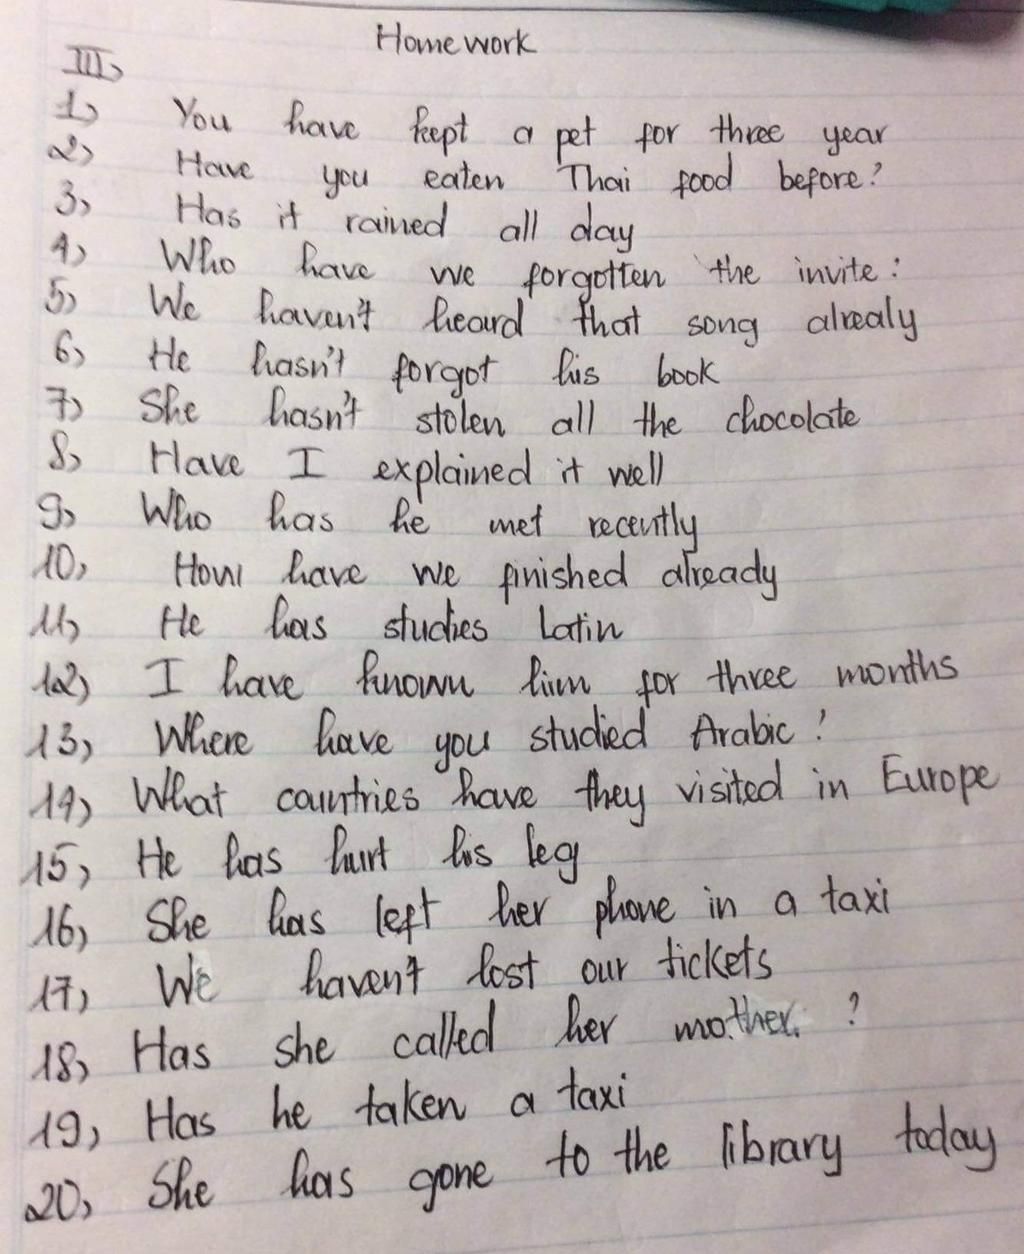 Homework
III,
1, You have kept a pet for three year
2, Have you eaten Thai food before?
3, Has it rained all day
4, Who have we forgotten the invite :
5, We haven't heard that song alrealy
6, He hasn't forgot his book
7, She hasn't stolen all the chocolate
8, Have I explained it well
9, Who has he met recently
10, How have we finished already
11, He has studies Latin
12, I have known him for three months
13, Where have you studied Arabic ?
14, What countries have they visited in Europe
15, He has hurt his leg
16, She has left her phone in a taxi
17, We haven't lost our tickets
18, Has she called her mother. ?
19, Has he taken a taxi
20, She has gone to the library today